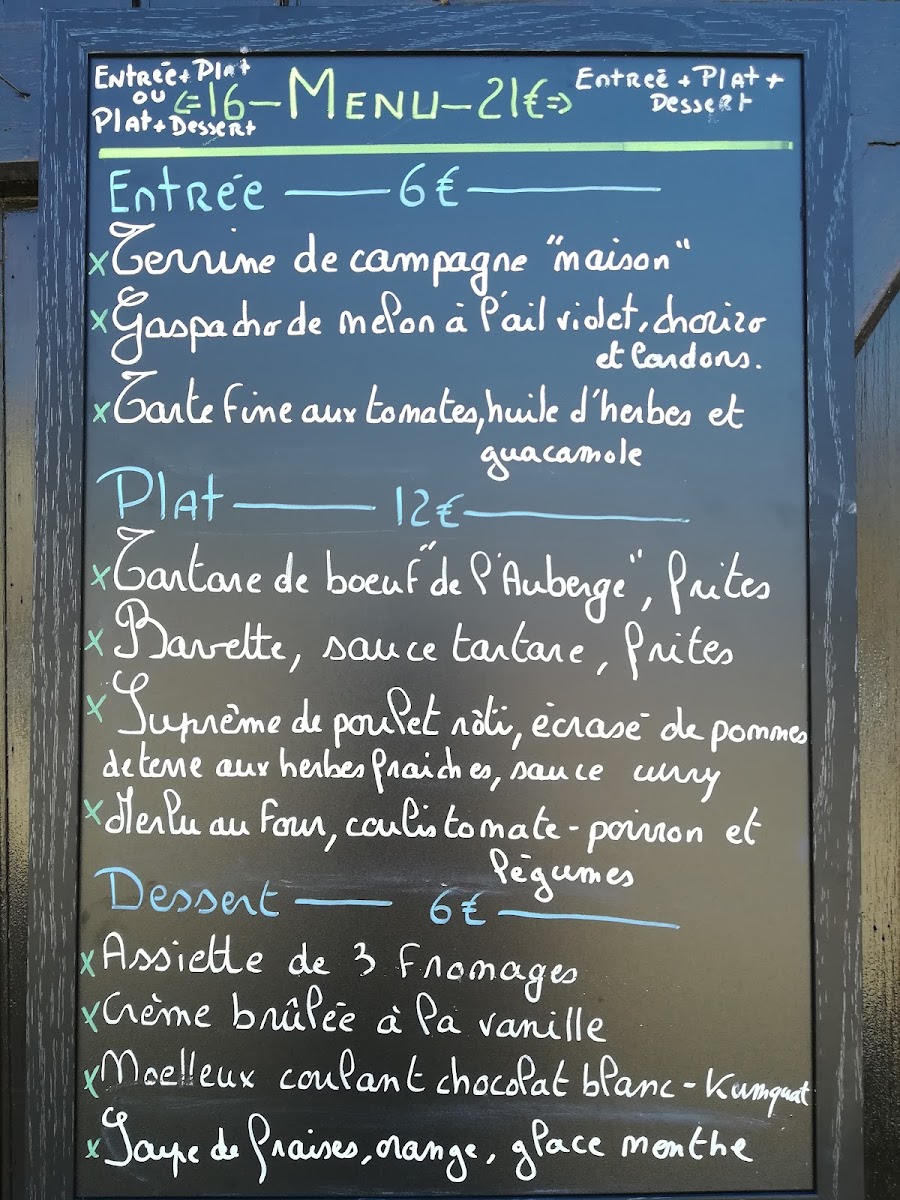 Entrée + Plat
ou
Plat + Dessert
<= 16 — Menu — 21€ =>
Entreé + Plat +
Dessert
Entrée — 6€ —
x Terrine de campagne "maison"
x Gaspacho de melon à l'ail violet, chorizo
et lardons.
x Tarte fine aux tomates, huile d'herbes et
guacamole
Plat — 12€ —
x Tartare de boeuf "de l'Auberge", frites
x Bavette, sauce tartare, frites
x Suprême de poulet rôti, écrasé de pommes
de terre aux herbes fraiches, sauce curry
x Merlu au four, coulis tomate - poivron et
légumes
Dessert — 6€ —
x Assiette de 3 fromages
x Crème brûlée à la vanille
x Moelleux coulant chocolat blanc - Kumquat
x Soupe de fraises, orange, glace menthe